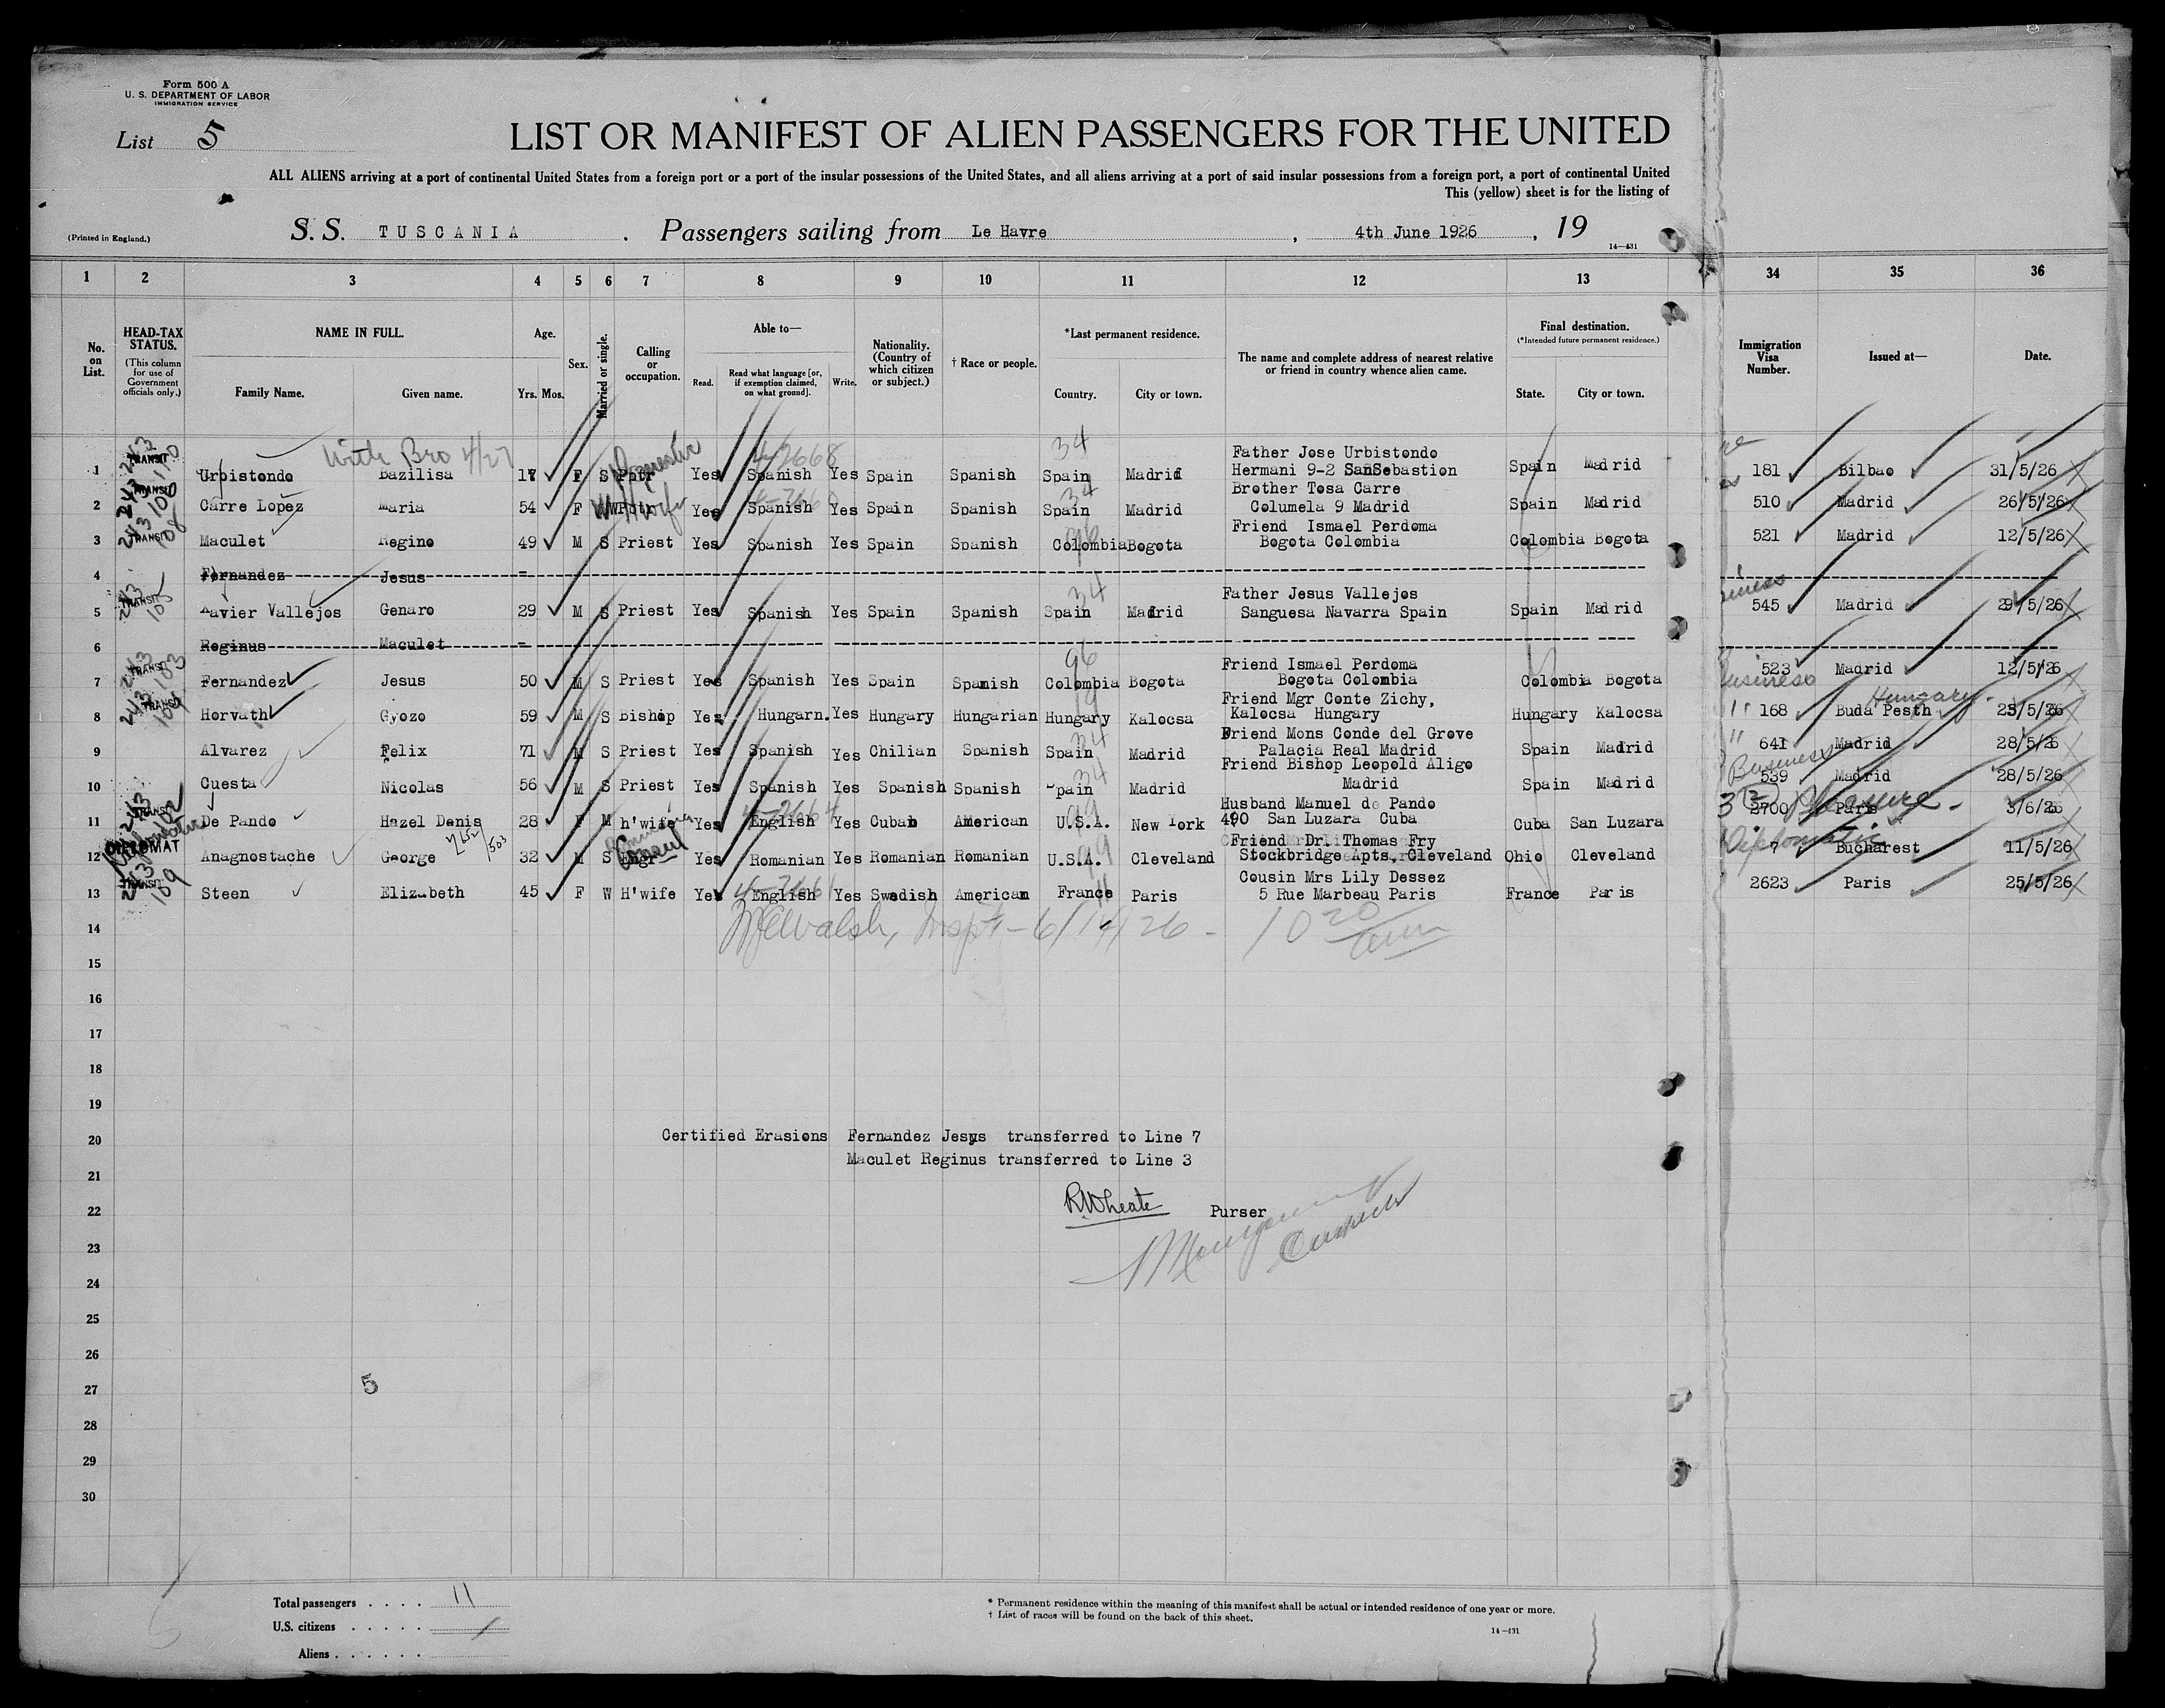 Form 500 A
U. S. DEPARTMENT OF LABOR
IMMIGRATION SERVICE
List 5
LIST OR MANIFEST OF ALIEN PASSENGERS FOR THE UNITED
ALL ALIENS arriving at a port of continental United States from a foreign port or a port of the insular possessions of the United States, and all aliens arriving at a port of said insular possessions from a foreign port, a port of continental United
This (yellow) sheet is for the listing of
(Printed in England.)
S. S. TUSCANIA . Passengers sailing from Le Havre , 4th June 1926 , 19
14—431
1 2 3 4 5 6 7 8 9 10 11 12 13 34 35 36
No. on List.
HEAD-TAX STATUS.
(This column for use of Government officials only.)
NAME IN FULL.
Family Name. Given name.
Age.
Yrs. Mos.
Sex.
Married or single.
Calling or occupation.
Able to—
Read. Read what language [or, if exemption claimed, on what ground]. Write.
Nationality. (Country of which citizen or subject.)
† Race or people.
*Last permanent residence.
Country. City or town.
The name and complete address of nearest relative or friend in country whence alien came.
Final destination.
(*Intended future permanent residence.)
State. City or town.
Immigration Visa Number.
Issued at—
Date.
With Bro 4/27
1 TRANSIT Urbistondo Bazilisa F S Domestic Yes Spanish Yes Spain Spanish Spain Madrid Father Jose Urbistondo Hermani 9-2 SanSebastion Spain Madrid 181 Bilbao 31/5/26
2 TRANSIT Carre Lopez Maria 54 F W H'wife Yes Spanish Yes Spain Spanish Spain Madrid Brother Tosa Carre Columela 9 Madrid Spain Madrid 510 Madrid 26/5/26
3 TRANSIT Maculet Regino 49 M S Priest Yes Spanish Yes Spain Spanish Colombia Bogota Friend Ismael Perdoma Bogota Colombia Colombia Bogota 521 Madrid 12/5/26
4 Fernandez Jesus
5 TRANSIT Xavier Vallejos Genaro 29 M S Priest Yes Spanish Yes Spain Spanish Spain Madrid Father Jesus Vallejos Sanguesa Navarra Spain Spain Madrid 545 Madrid 29/5/26
6 Reginus Maculet
7 TRANSIT Fernandez Jesus 50 M S Priest Yes Spanish Yes Spain Spanish Colombia Bogota Friend Ismael Perdoma Bogota Colombia Colombia Bogota 523 Madrid 12/5/26
8 TRANSIT Horvath Gyozo 59 M S Bishop Yes Hungarn. Yes Hungary Hungarian Hungary Kalocsa Friend Mgr Conte Zichy, Kalocsa Hungary Hungary Kalocsa 168 Buda Pesth Hungary 25/5/26
9 Alvarez Felix 71 M S Priest Yes Spanish Yes Chilian Spanish Spain Madrid Friend Mons Conde del Grove Palacia Real Madrid Spain Madrid 641 Madrid 28/5/26
10 Cuesta Nicolas 56 M S Priest Yes Spanish Yes Spanish Spanish Spain Madrid Friend Bishop Leopold Aligo Madrid Spain Madrid Business 539 Madrid 28/5/26
11 TRANSIT De Pando Hazel Denis 28 F M h'wife Yes English Yes Cuban American U.S.A. New York Husband Manuel de Pando 490 San Luzara Cuba Cuba San Luzara 2700 Paris Pleasure 3/6/26
12 DIPLOMAT Anagnostache George 32 M S Consul Yes Romanian Yes Romanian Romanian U.S.A. Cleveland Friend Dr. Thomas Fry Stockbridge Apts, Cleveland Ohio Cleveland Diplomatic 7 Bucharest 11/5/26
13 TRANSIT Steen Elizabeth 45 F W H'wife Yes English Yes Swedish American France Paris Cousin Mrs Lily Dessez 5 Rue Marbeau Paris France Paris 2623 Paris 25/5/26
14 Walsh, Inspt - 6/14/26 - 10 20 am
15
16
17
18
19
20 Certified Erasions Fernandez Jesus transferred to Line 7
Maculet Reginus transferred to Line 3
21
22 Purser
23
24
25
26
27 5
28
29
30
Total passengers . . . . 11
U.S. citizens . . . . .
Aliens . . . . . .
* Permanent residence within the meaning of this manifest shall be actual or intended residence of one year or more.
† List of races will be found on the back of this sheet.
14—431